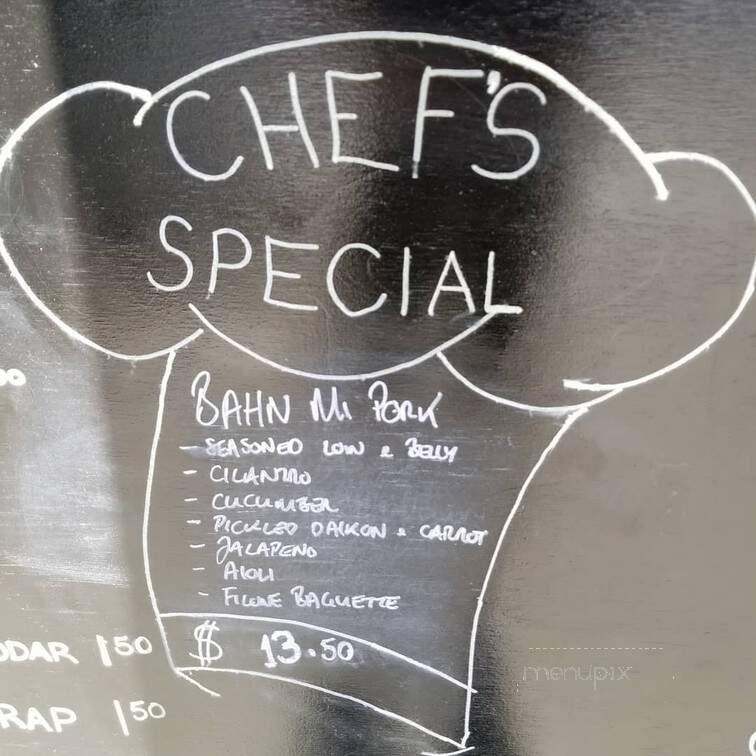 CHEF'S
SPECIAL
BAHN MI PORK
- SEASONED LOIN & BELLY
- CILANTRO
- CUCUMBER
- PICKLED DAIKON & CARROT
- JALAPENO
- AIOLI
- FICONE BAGUETTE
$ 13.50
DDAR 1 50
RAP 1 50
menupix